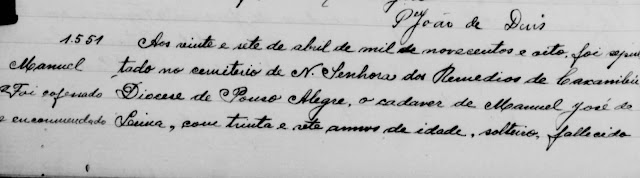 Pe João de Deus
1.551 Aos vinte e sete de abril de mil de novecentos e oito, foi sepul
Manuel tado no cemiterio de N. Senhora dos Remedios de Caxambú
Foi confessado Diocese de Pouso Alegre, o cadaver de Manuel José de
e encommendado Lima, com trinta e sete annos de idade, solteiro, fallecido